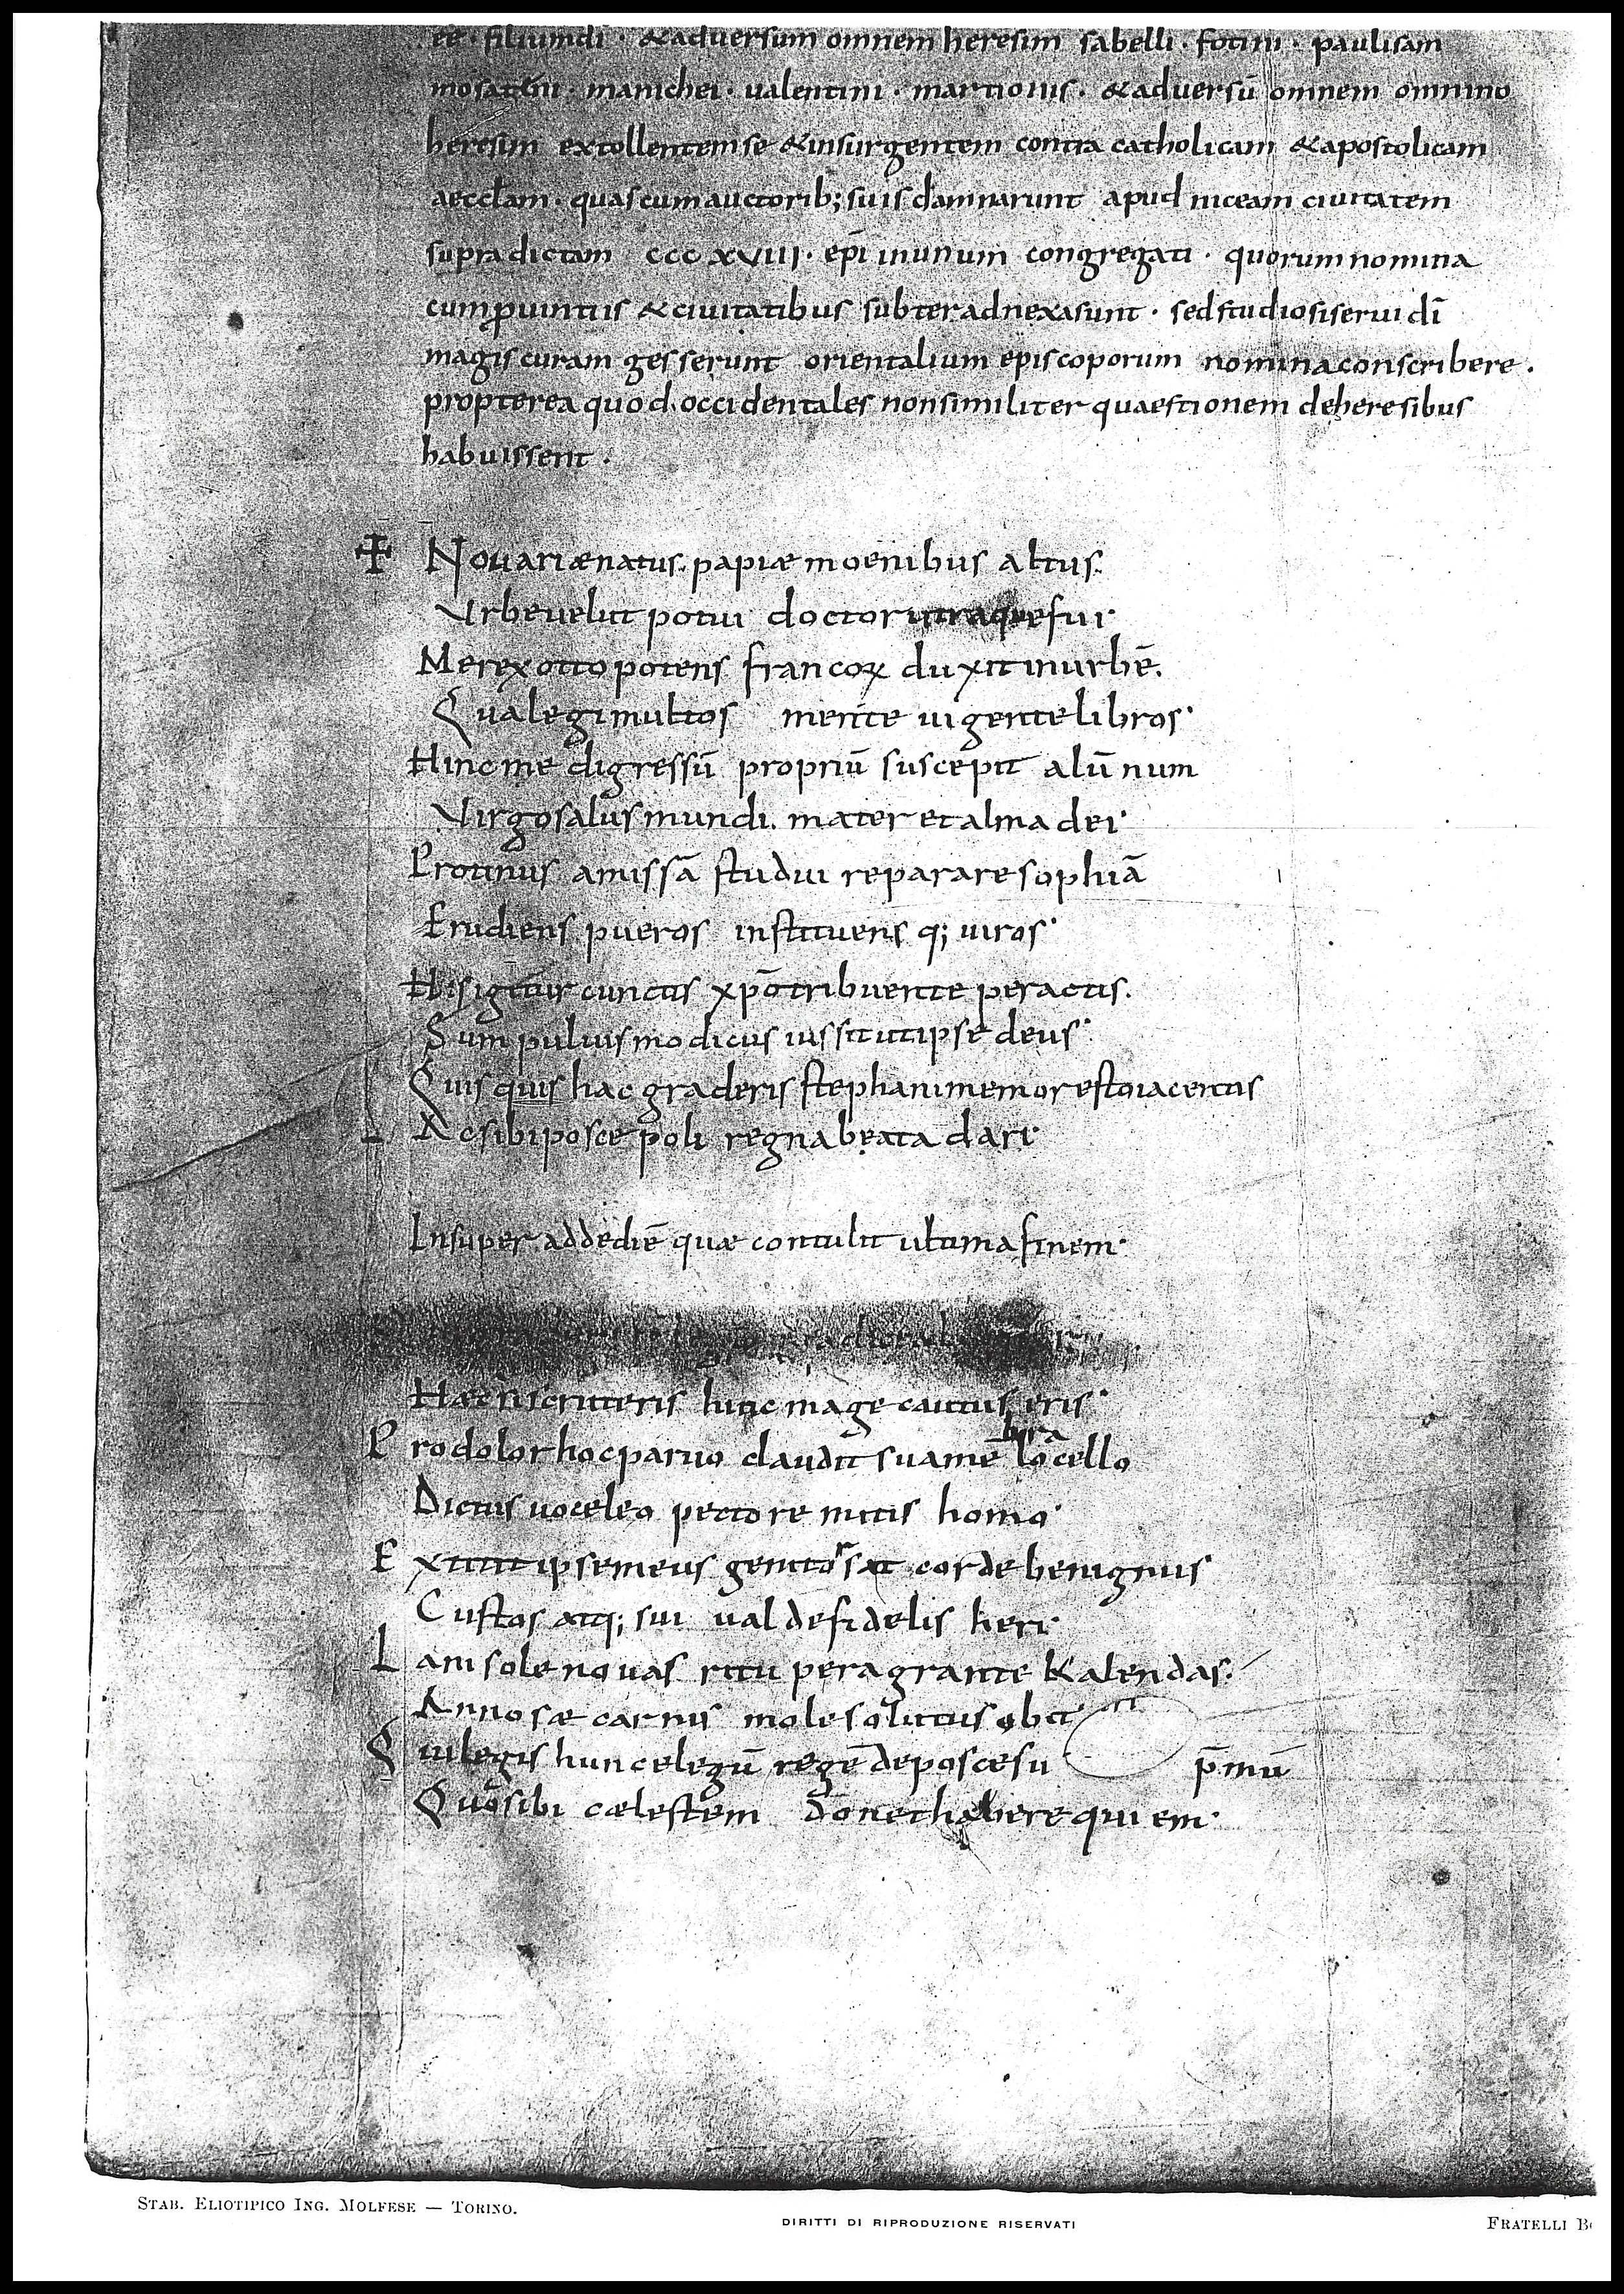 ēē · filiumdī · &aduersum omnem heresim sabelli · fotini · paulisam
mosateni · manichei · ualentini · martionis · &aduersū omnem omnino
heresim extollentemse &insurgentem contra catholicam &apostolicam
aeccłam · quascumauctorib; suis damnarunt apud niceam ciuitatem
supradictam cccxviii · epī inunum congregati · quorum nomina
cumprouintiis &ciuitatibus subteradnexasunt · sedstudiosiserui dī
magiscuram gesserunt orientalium episcoporum nominaconscribere ·
propterea quod occidentales nonsimiliter quaestionem deheresibus
habuissent ·
✠ Nouariænatus. papiæ moenibus altus.
Vrbeuelut potui doctor utraquefui·
Merex otto potens francoꝝ duxit inurbē.
Qualegi multos mente uigentelibros·
Hinc me digressū propriū suscepit alūnum
Virgosalus mundi. mater et alma dei·
Protinus amissā studui reparare sophiā
Erudiens pueros instituens q; uiros·
Hisigitur cunctis xp̄otribuente peractis.
Sum puluis modicus iussit utipse deus·
Quisquis hac graderis stephani memor esto iacentis
Ac sibi posce poli regna beata dari·
Insuper addediē quæ contulit ultima finem·
Hæc ni scruteris hunc mage cautus eris·
Pro dolor hoc paruo claudit sua mē bra locello
Dictus uoce leo pectore mitis homo·
Extitit ipse meus genitor sat corde benignus
Custos atq; sui ualde fidelis heri·
Iam sole nouas ritu peragrante kalendas·
Annosæ carnis mole solutus obit·
Qui legis hunc elegū regē deposce su p̄mū
Quo sibi cælestem donet habere quiem·
Stab. Eliotipico Ing. Molfese — Torino.
DIRITTI DI RIPRODUZIONE RISERVATI
Fratelli